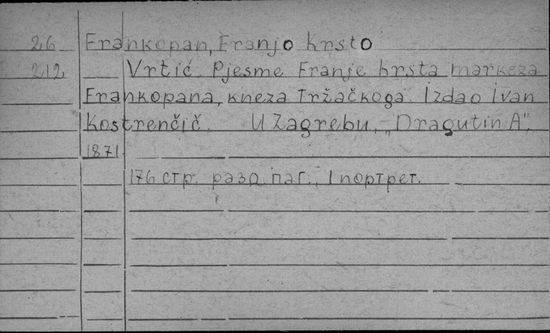 26 Frankopan, Franjo Krsto
212 Vrtić. Pjesme Franje krsta markeza
Frankopana, kneza Tržačkoga. Izdao Ivan
Kostrenčič. U Zagrebu, „Dragutin A",
1871
176 стр. разд. паг., 1 портрет.